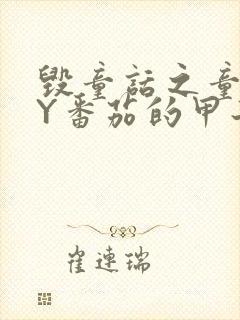 毁童话之童
Y番茄的甲
崔连瑞